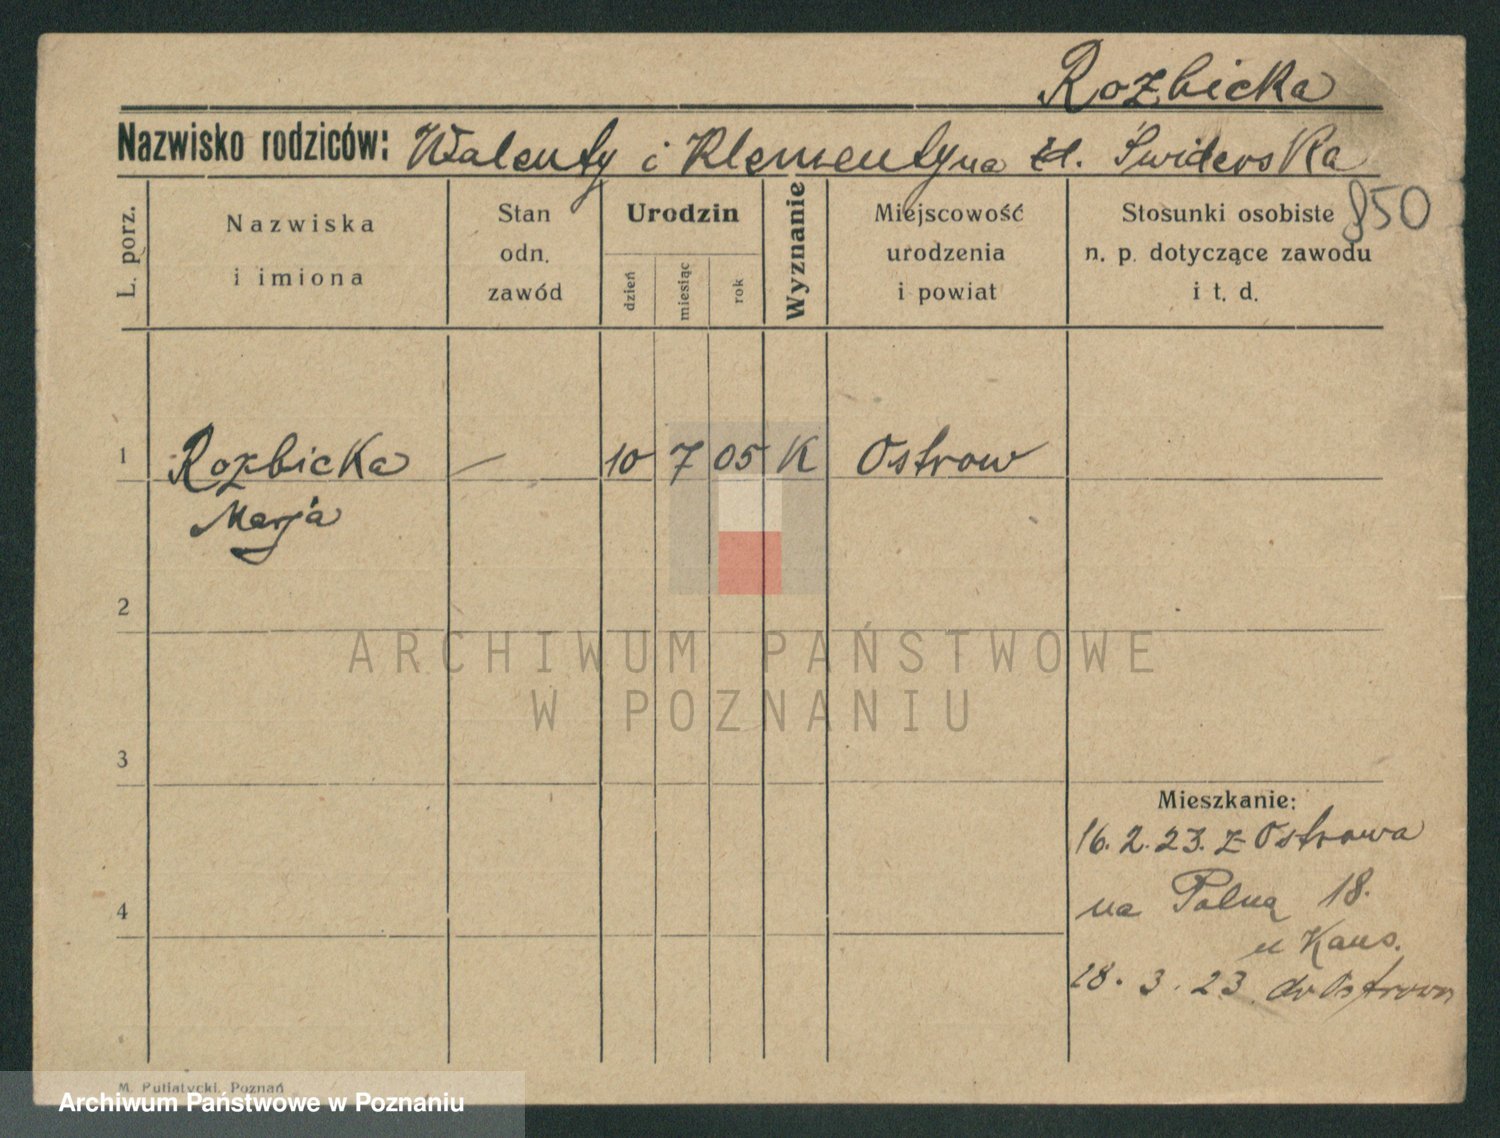 Rozbicka
Nazwisko rodziców: Walenty i Klementyna zd. Świderska
850
L. porz.
Nazwiska
i imiona
Stan
odn.
zawód
Urodzin
dzień
miesiąc
rok
Wyznanie
Miejscowość
urodzenia
i powiat
Stosunki osobiste
n. p. dotyczące zawodu
i t. d.
1 Rozbicka — 10 7 05 K Ostrow
Marja
2
3
4
Mieszkanie:
16.2.23. z Ostrowa
na Polną 18.
u Kaus.
28.3.23 do Ostrowa
M. Putiatycki, Poznań
ARCHIWUM PAŃSTWOWE
W POZNANIU
Archiwum Państwowe w Poznaniu